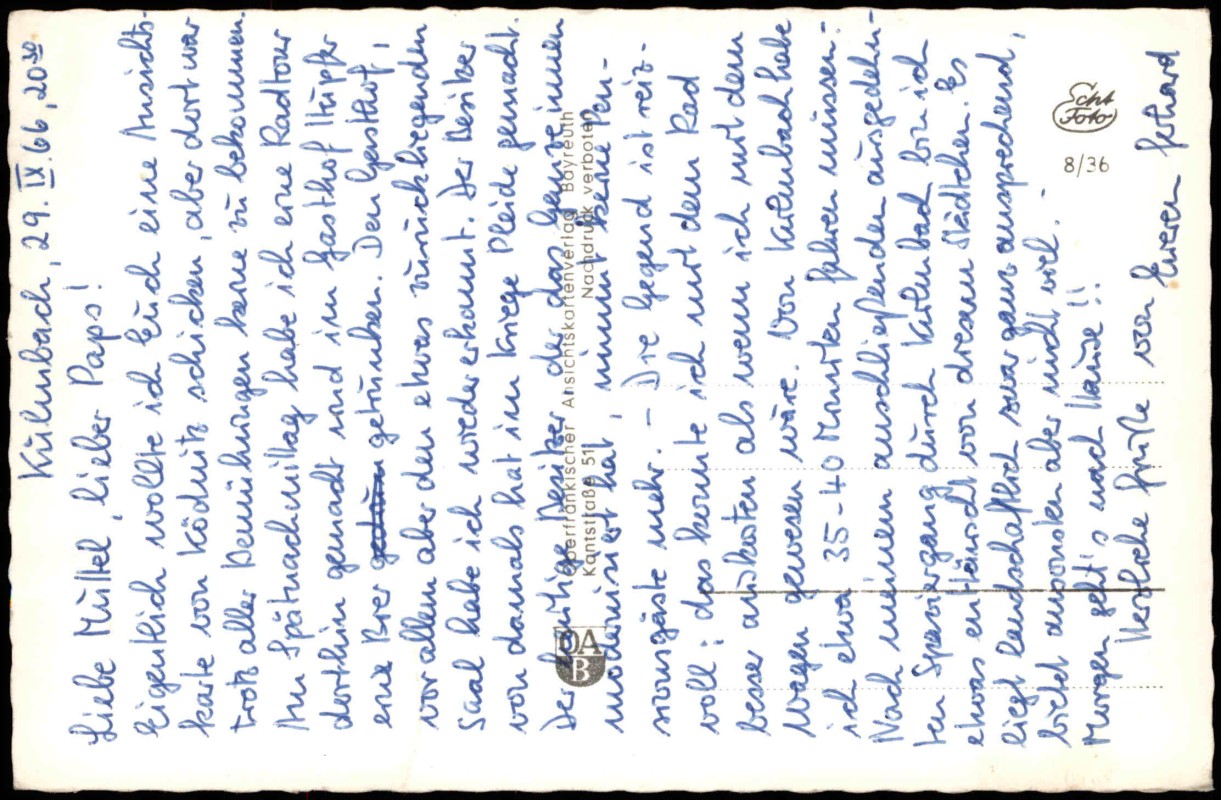 Kulmbach, 29. IX. 66, 20³⁰
Liebe Muttel, lieber Paps!
Eigentlich wollte ich Euch eine Ansichts-
karte von Ködnitz schicken, aber dort war
trotz aller Bemühungen keine zu bekommen.
Am Spätnachmittag habe ich eine Radtour
dorthin gemacht und im Gasthof Hupfer
eine Bier getrunken. Den Gasthof,
vor allem aber den etwas zurückliegenden
Saal habe ich wiedererkannt. Der Besitzer
von damals hat im Kriege Pleide gemacht.
Der heutige Besitzer, der das Ganze innen
modernisiert hat, nimmt keine Pen-
sionsgäste mehr. – Die Gegend ist reiz-
voll; das konnte ich mit dem Rad
besser auskosten als wenn ich mit dem
Wagen gewesen wäre. Von Kulmbach habe
ich etwa 35-40 Minuten fahren müssen. –
Nach meinem anschließenden ausgedehn-
ten Spaziergang durch Kulmbach bin ich
etwas enttäuscht von diesem Städtchen. Es
liegt landschaftlich zwar ganz ansprechend,
bietet ansonsten aber nicht viel. –
Morgen geht's nach Hause!!
Herzliche Grüße von Eurem Gerhard
Oberfränkischer Ansichtskartenverlag Bayreuth
Kantstraße 511 Nachdruck verboten
OAB
Echt Foto
8/36